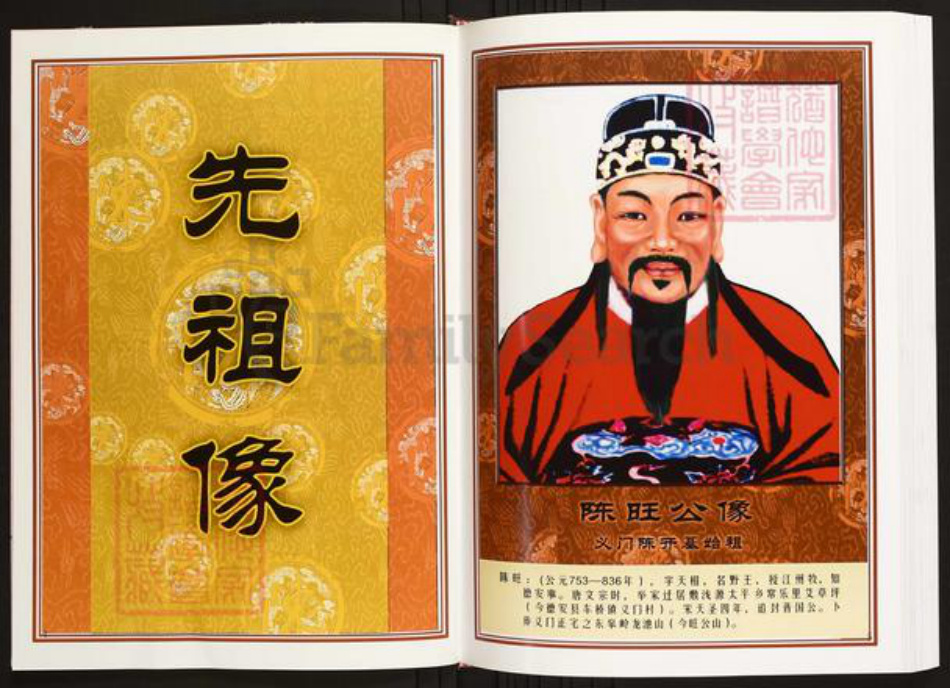 先祖像
陈旺公像
义门陈开基始祖
陈旺：(公元753—836年)，字天相，名野王，授江州牧，知
德安事。唐文宗时，举家过居敷浅源太平乡常乐里艾草坪
(今德安县车桥镇义门村)。宋天圣四年，追封晋国公。卜
葬义门正宅之东皋岭龙池山(今旺公山)。
FamilySearch